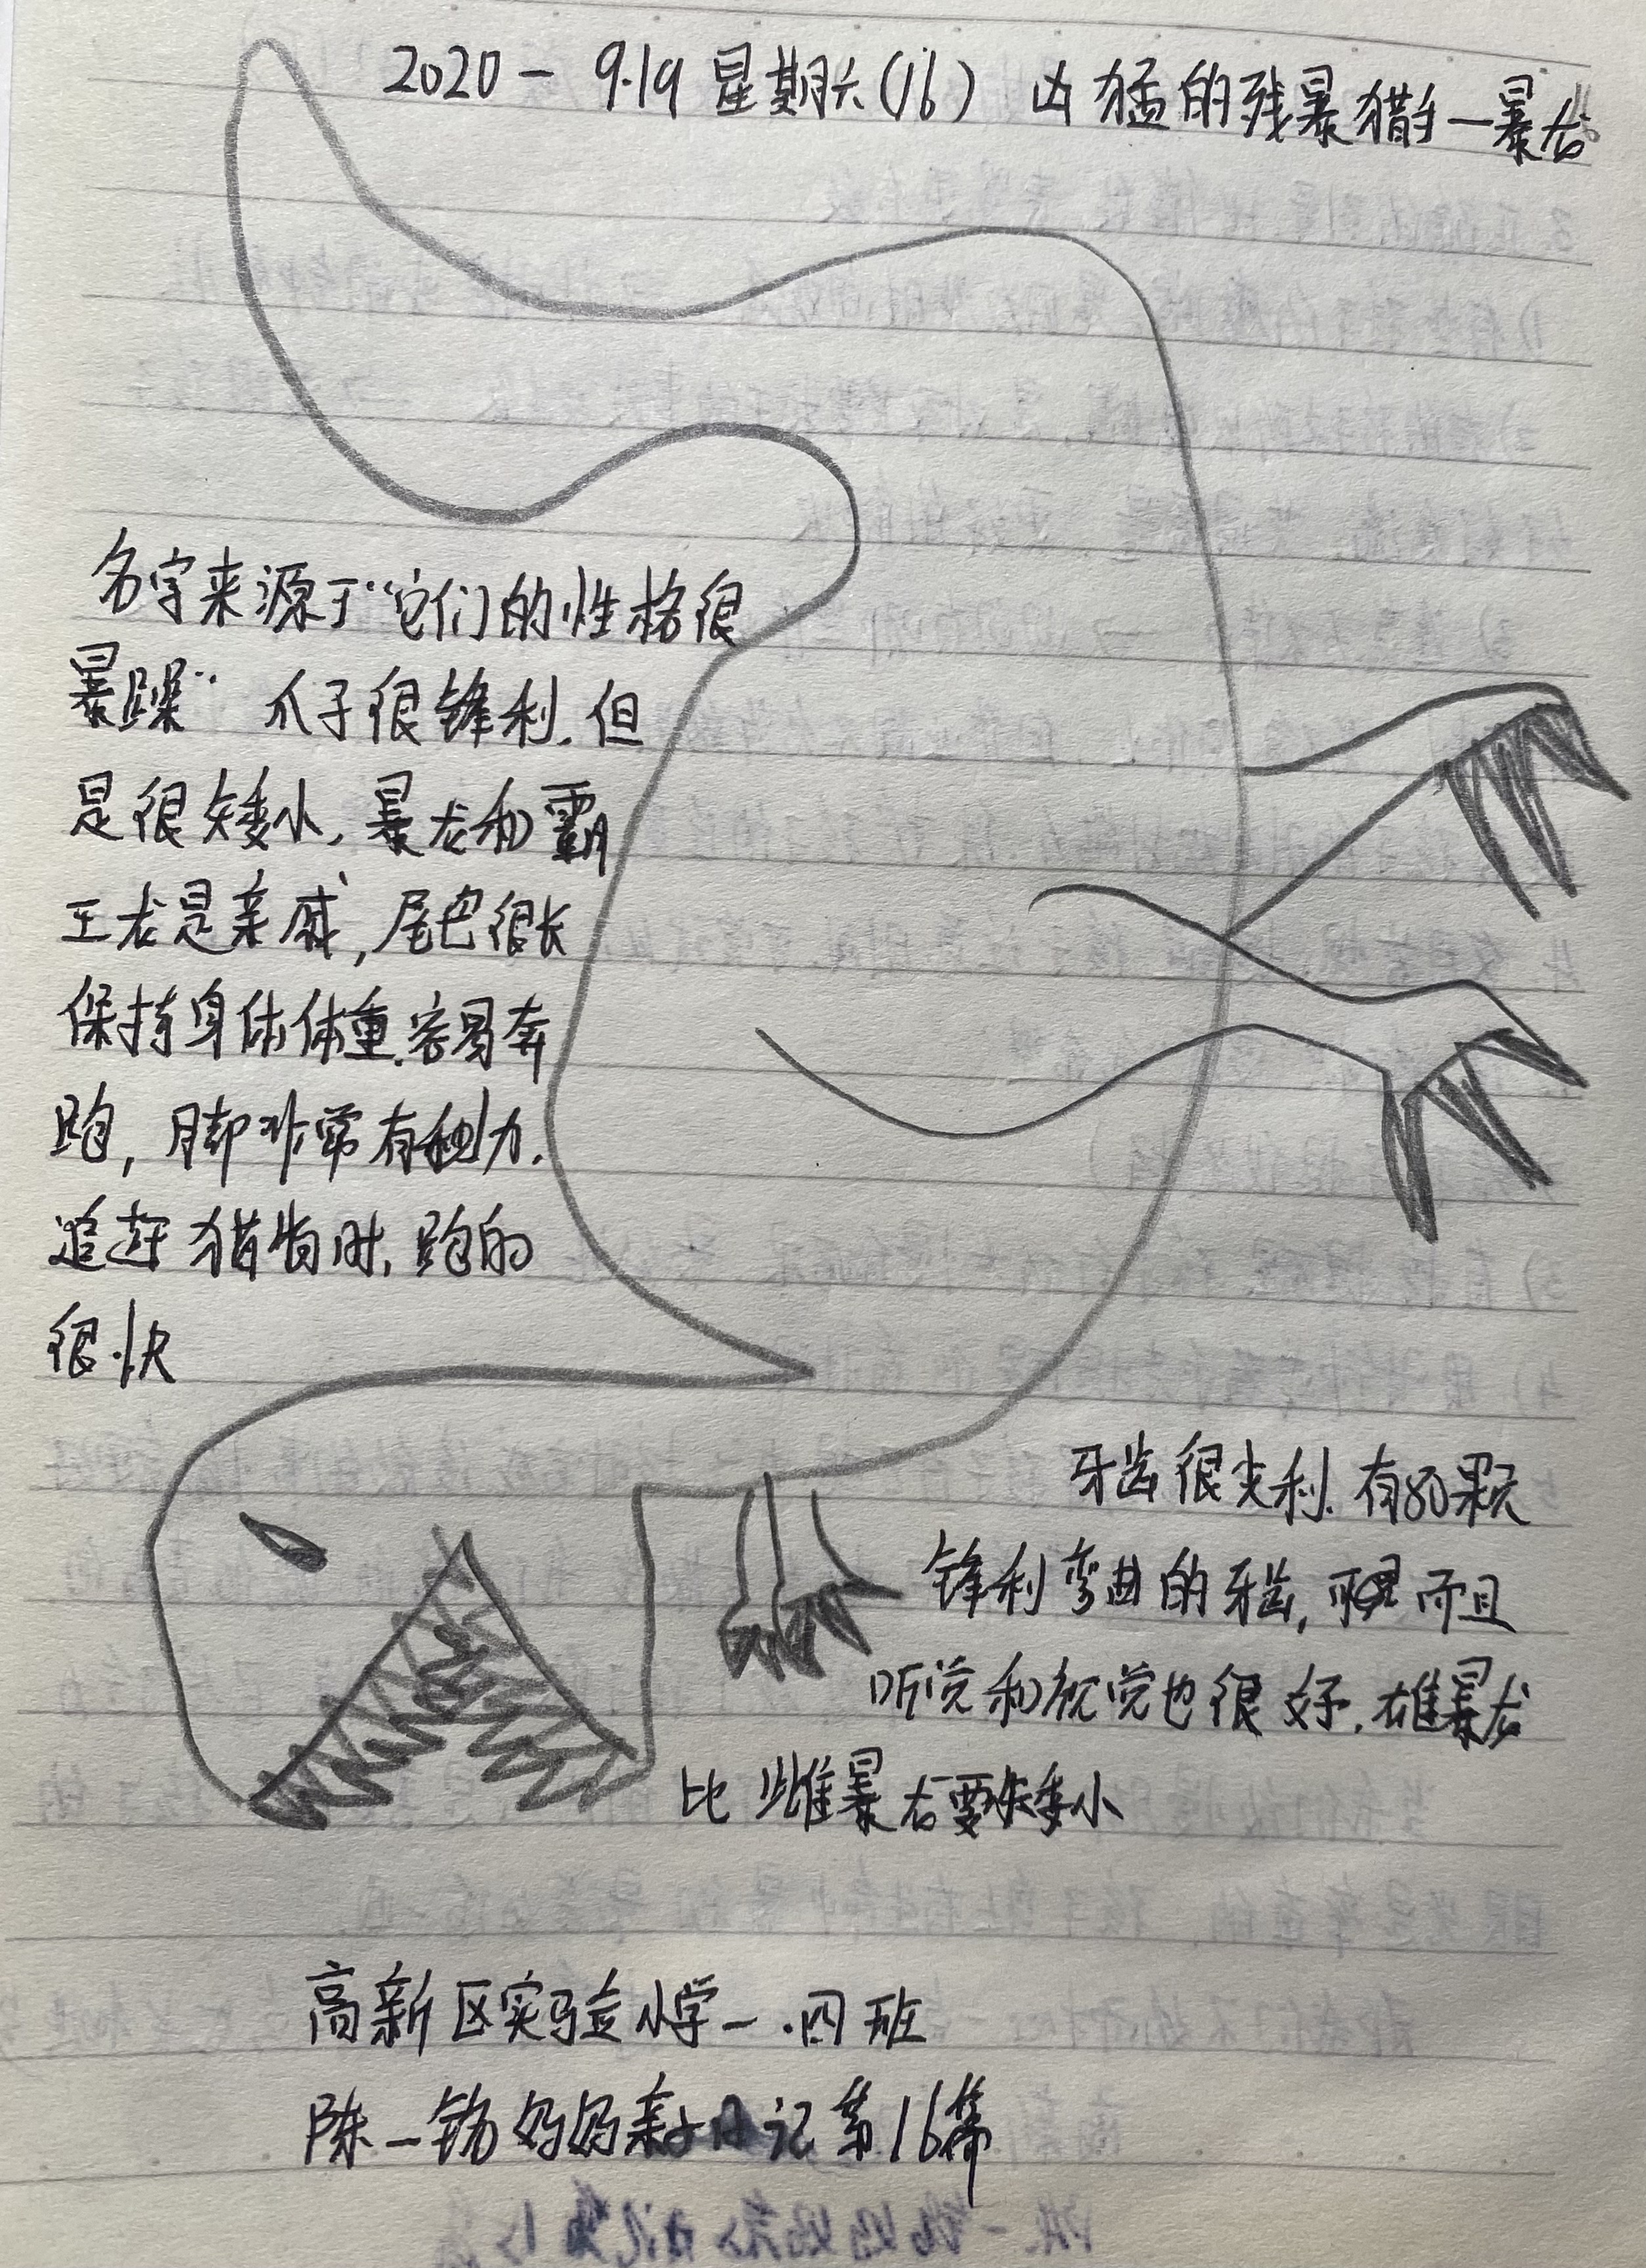 2020 - 9.19 星期六(16) 凶猛的残暴猎手—暴龙
名字来源于“它们的性格很
暴躁” 爪子很锋利.但
是很矮小,暴龙和霸
王龙是亲戚,尾巴很长
保持身体体重.容易奔
跑,脚非常有力.
追赶猎物时.跑的
很快
牙齿很尖利.有80颗
锋利弯曲的牙齿,而且
听觉和视觉也很好.雄暴龙
比雌暴龙要矮小
高新区实验小学一.四班
陈一铭妈妈亲子日记第16篇